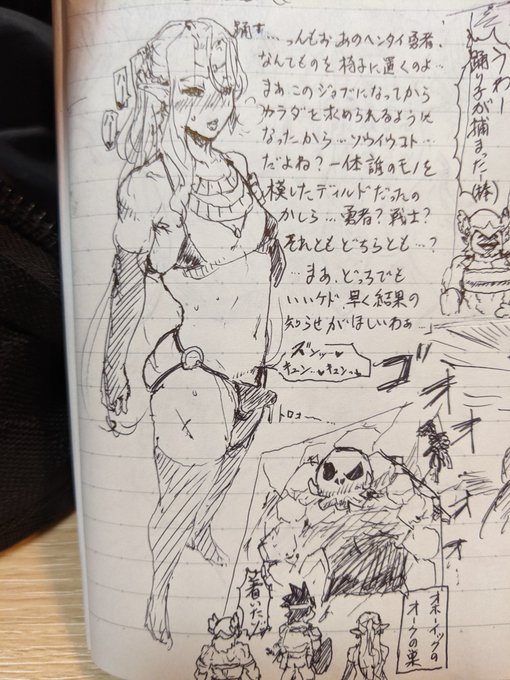 踊す…
っんもお あのヘンタイ勇者、
なんてものを椅子に置くのよ…
まぁ このジョブになってから
カラダを求められるように
なったから… ソウイウコト…
だよね? 一体誰のモノを
模したディルドだったの
かしら… 勇者? 戦士?
それともどちらとも…?
…まぁ、どっちでも
いいケド、早く結果の
知らせがほしいわぁ…
ズンッ…♥
キュン…♥キュンっ♥
トロォ〜…
うわー
踊り子が捕まった(棒)
ゴ
オ
オ
オ
着いたゾ
オークの巣